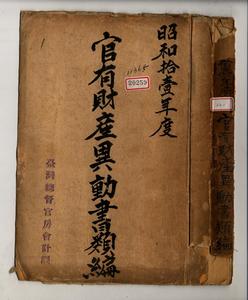 昭和拾壹年度
11665
20259
官有財産異動書類編
臺灣總督官房會計課